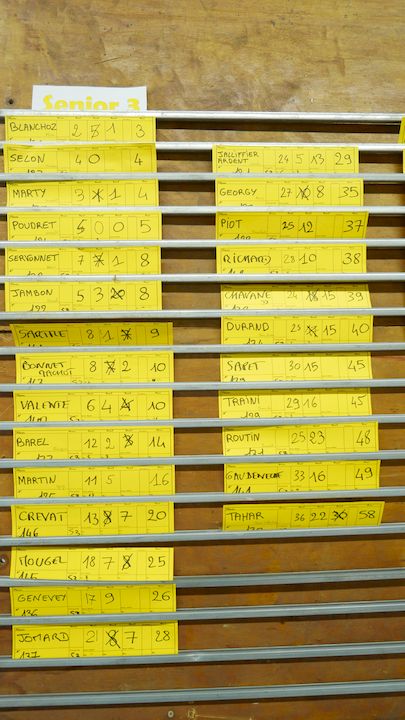 Senior 3
BLANCHOZ 2 5 1 3
SELON 4 0 4
MARTY 3 1 4
POUDRET 5 0 0 5
SERVONNET 7 1 8
JAMBON 5 3 8
SARTRE 8 1 9
BONNET 8 2 10
VALENTE 6 4 10
BAREL 12 2 14
MARTIN 11 5 16
CREVAT 13 8 7 20
146
MOUGEL 18 7 8 25
145
GENEVEY 17 9 26
136
JOMARD 21 8 7 28
137
JALLIFFIER
ARDENT 24 5 13 29
GEORGY 27 8 35
PIOT 25 12 37
RICHARD 28 10 38
CHAVANE 24 15 39
DURAND 25 15 40
SARET 30 15 45
TRAINI 29 16 45
ROUTIN 25 23 48
33 16 49
141
TAHAR 36 22 30 58